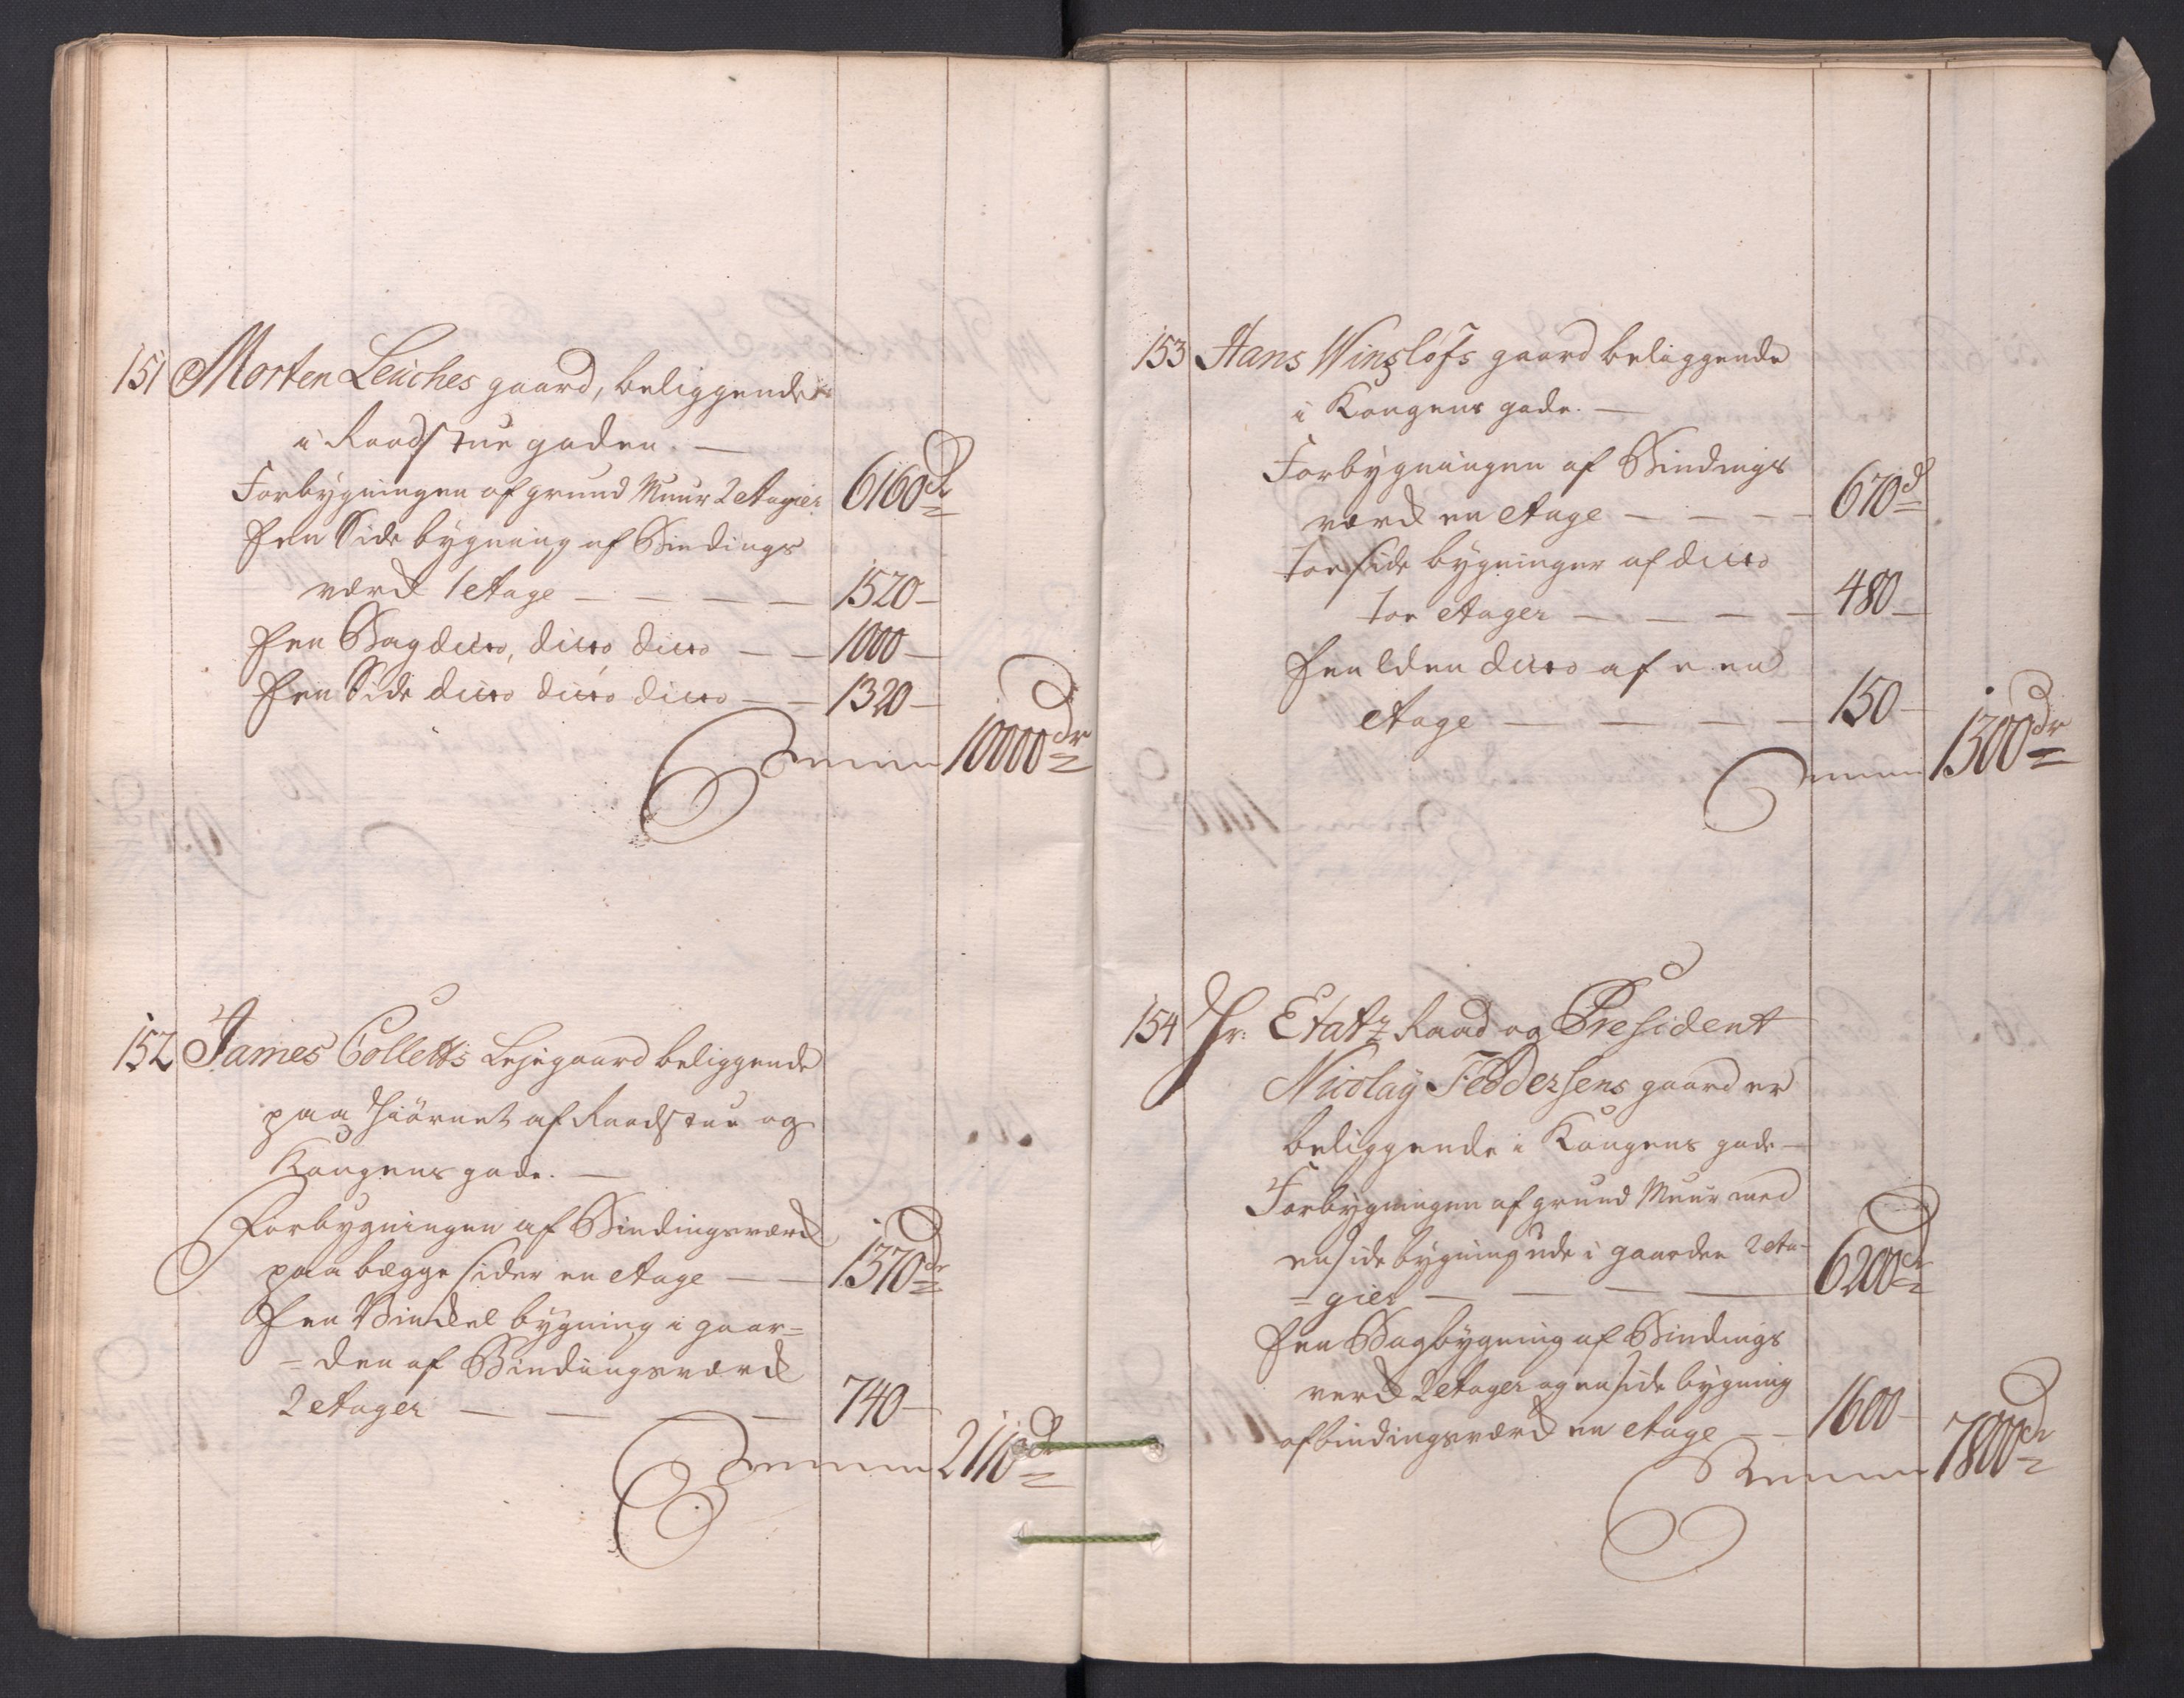 151 Morten Leüches gaard, beliggende
i Raadstue gaden. —
Forbygningen af grund Muur 2 etagier 6160 dr
Een Side bygning af Bindings
værck 1 etage — — — — 1520 —
Een Bag ditto, ditto ditto — — 1000 —
Een Side ditto ditto ditto — — 1320 —
Summa 10000 dr
152 James Colletts Lejegaard beliggende
paa Hiørnet af Raadstue og
Kongens gade. —
Forbygningen af Bindingsværck
paa begge sider en etage — — 1370 dr
Een Vinckel bygning i gaar=
=den af Bindingsværck
2 etager — — — — 740 —
Summa 2110 dr
153 Hans Winsløfs gaard beliggende
i Kongens gade. —
Forbygningen af Bindings
værck en etage — — — — 670 d
toe side bygninger af ditto
toe etager — — — — 480 —
Een lden ditto af een
etage — — — — 150 —
Summa 1300 dr
154 Hr: Etatz Raad og President
Nicolaÿ Feddersens gaard er
beliggende i Kongens gade —
Forbygningen af grund Muur med
en side bygning ude i gaarden 2 eta-
=gier — — — — 6200 dr
Een Bagbygning af Bindings
verck 2 etager og en side bygning
af bindingsværck en etage — — 1600 —
Summa 7800 dr